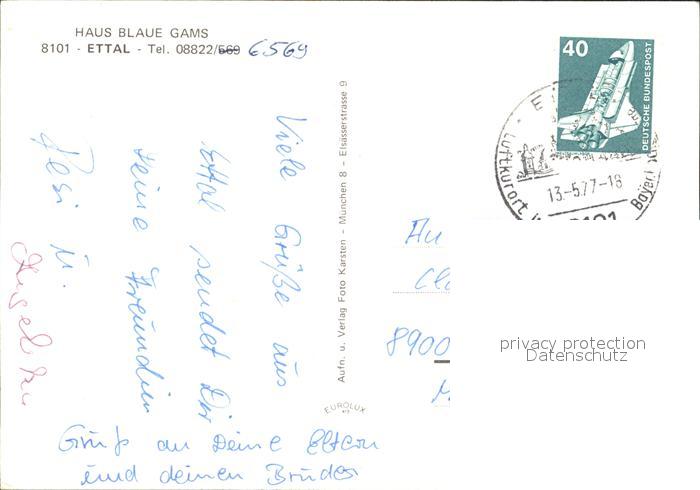 HAUS BLAUE GAMS
8101 - ETTAL - Tel. 08822/669 6569
Viele Grüße aus
Ettal sendet Dir
Deine Freundin
Resi u.
Angelika
Gruß an Deine Eltern
und deinen Bruder
Aufn. u. Verlag Foto Karsten - München 8 - Elsässerstrasse 9
EUROLUX
40
DEUTSCHE BUNDESPOST
E
Luftkurort
13.-5.77-18
Bayer
8101
An
8900
privacy protection
Datenschutz